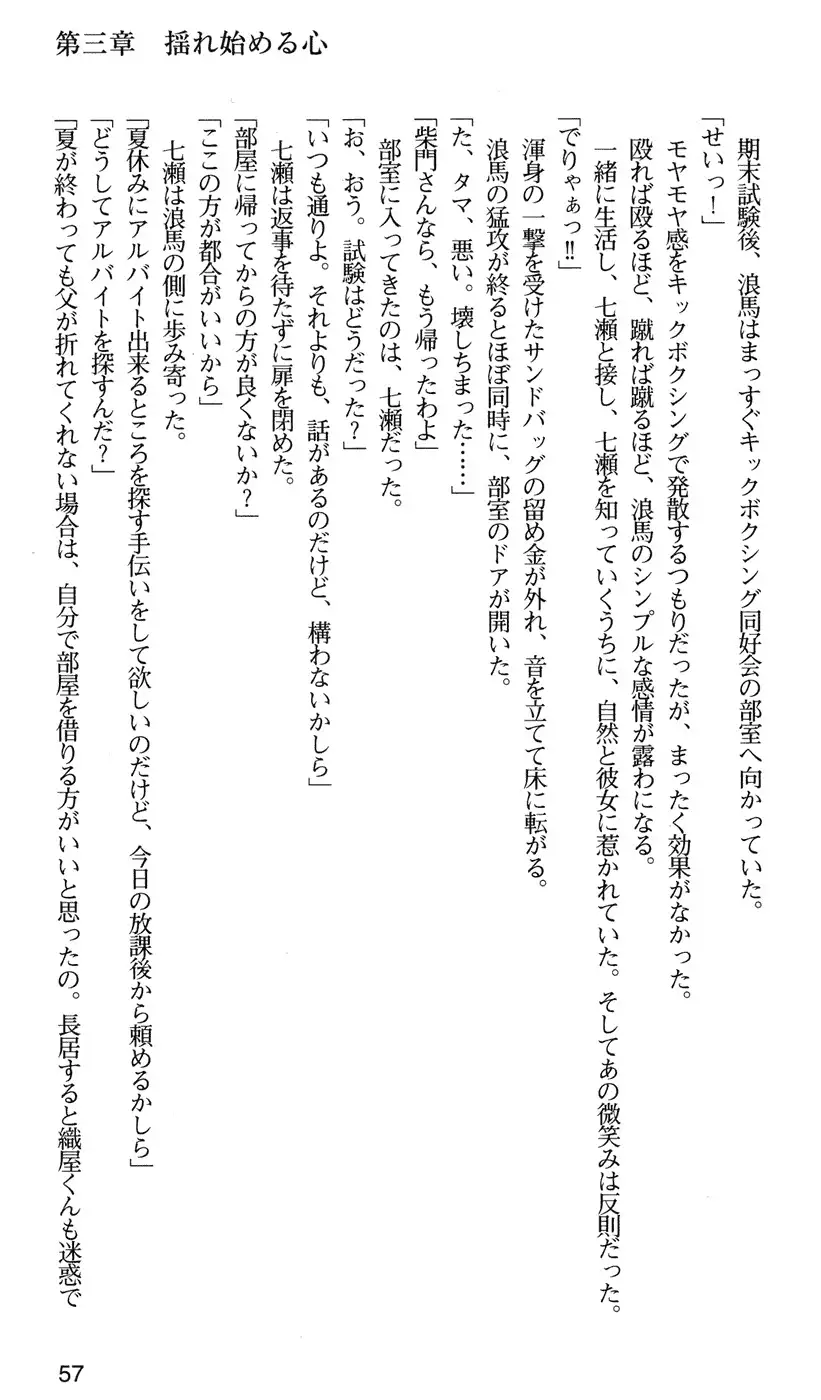 第三章　揺れ始める心
期末試験後、浪馬はまっすぐキックボクシング同好会の部室へ向かっていた。
「せいっ！」
モヤモヤ感をキックボクシングで発散するつもりだったが、まったく効果がなかった。
殴れば殴るほど、蹴れば蹴るほど、浪馬のシンプルな感情が露わになる。
一緒に生活し、七瀬と接し、七瀬を知っていくうちに、自然と彼女に惹かれていた。そしてあの微笑みは反則だった。
「でりゃぁっ!!」
渾身の一撃を受けたサンドバッグの留め金が外れ、音を立てて床に転がる。
浪馬の猛攻が終るとほぼ同時に、部室のドアが開いた。
「た、タマ、悪い。壊しちまった……」
「柴門さんなら、もう帰ったわよ」
部室に入ってきたのは、七瀬だった。
「お、おう。試験はどうだった？」
「いつも通りよ。それよりも、話があるのだけど、構わないかしら」
七瀬は返事を待たずに扉を閉めた。
「部屋に帰ってからの方が良くないか？」
「ここの方が都合がいいから」
七瀬は浪馬の側に歩み寄った。
「夏休みにアルバイト出来るところを探す手伝いをして欲しいのだけど、今日の放課後から頼めるかしら」
「どうしてアルバイトを探すんだ？」
「夏が終わっても父が折れてくれない場合は、自分で部屋を借りる方がいいと思ったの。長居すると織屋くんも迷惑で
57